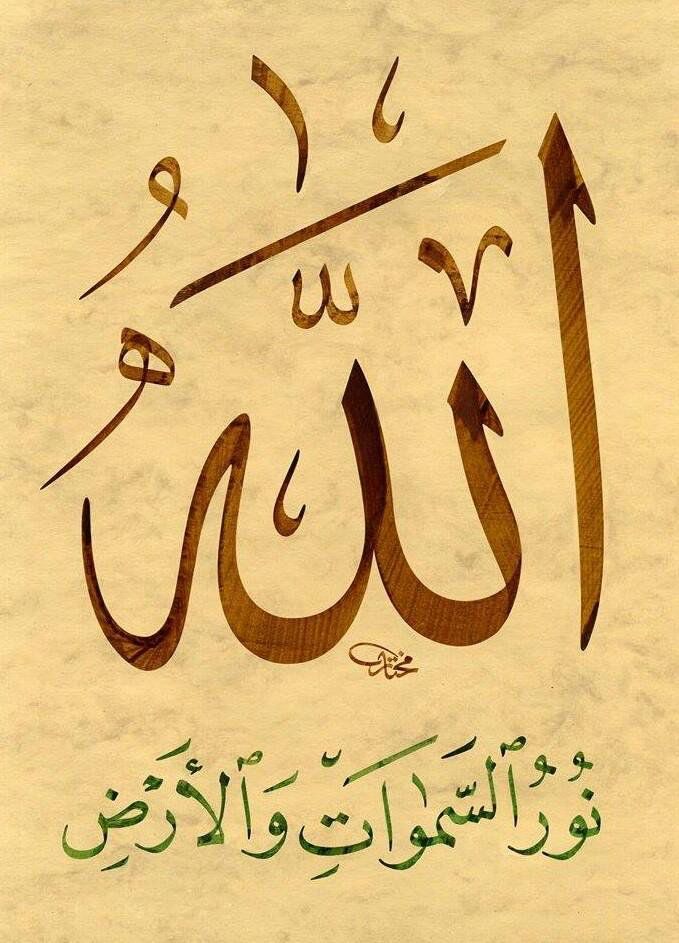 اللَّهُ
مختار
نُورُ ٱلسَّمٰوَاتِ وَٱلْأَرْضِ